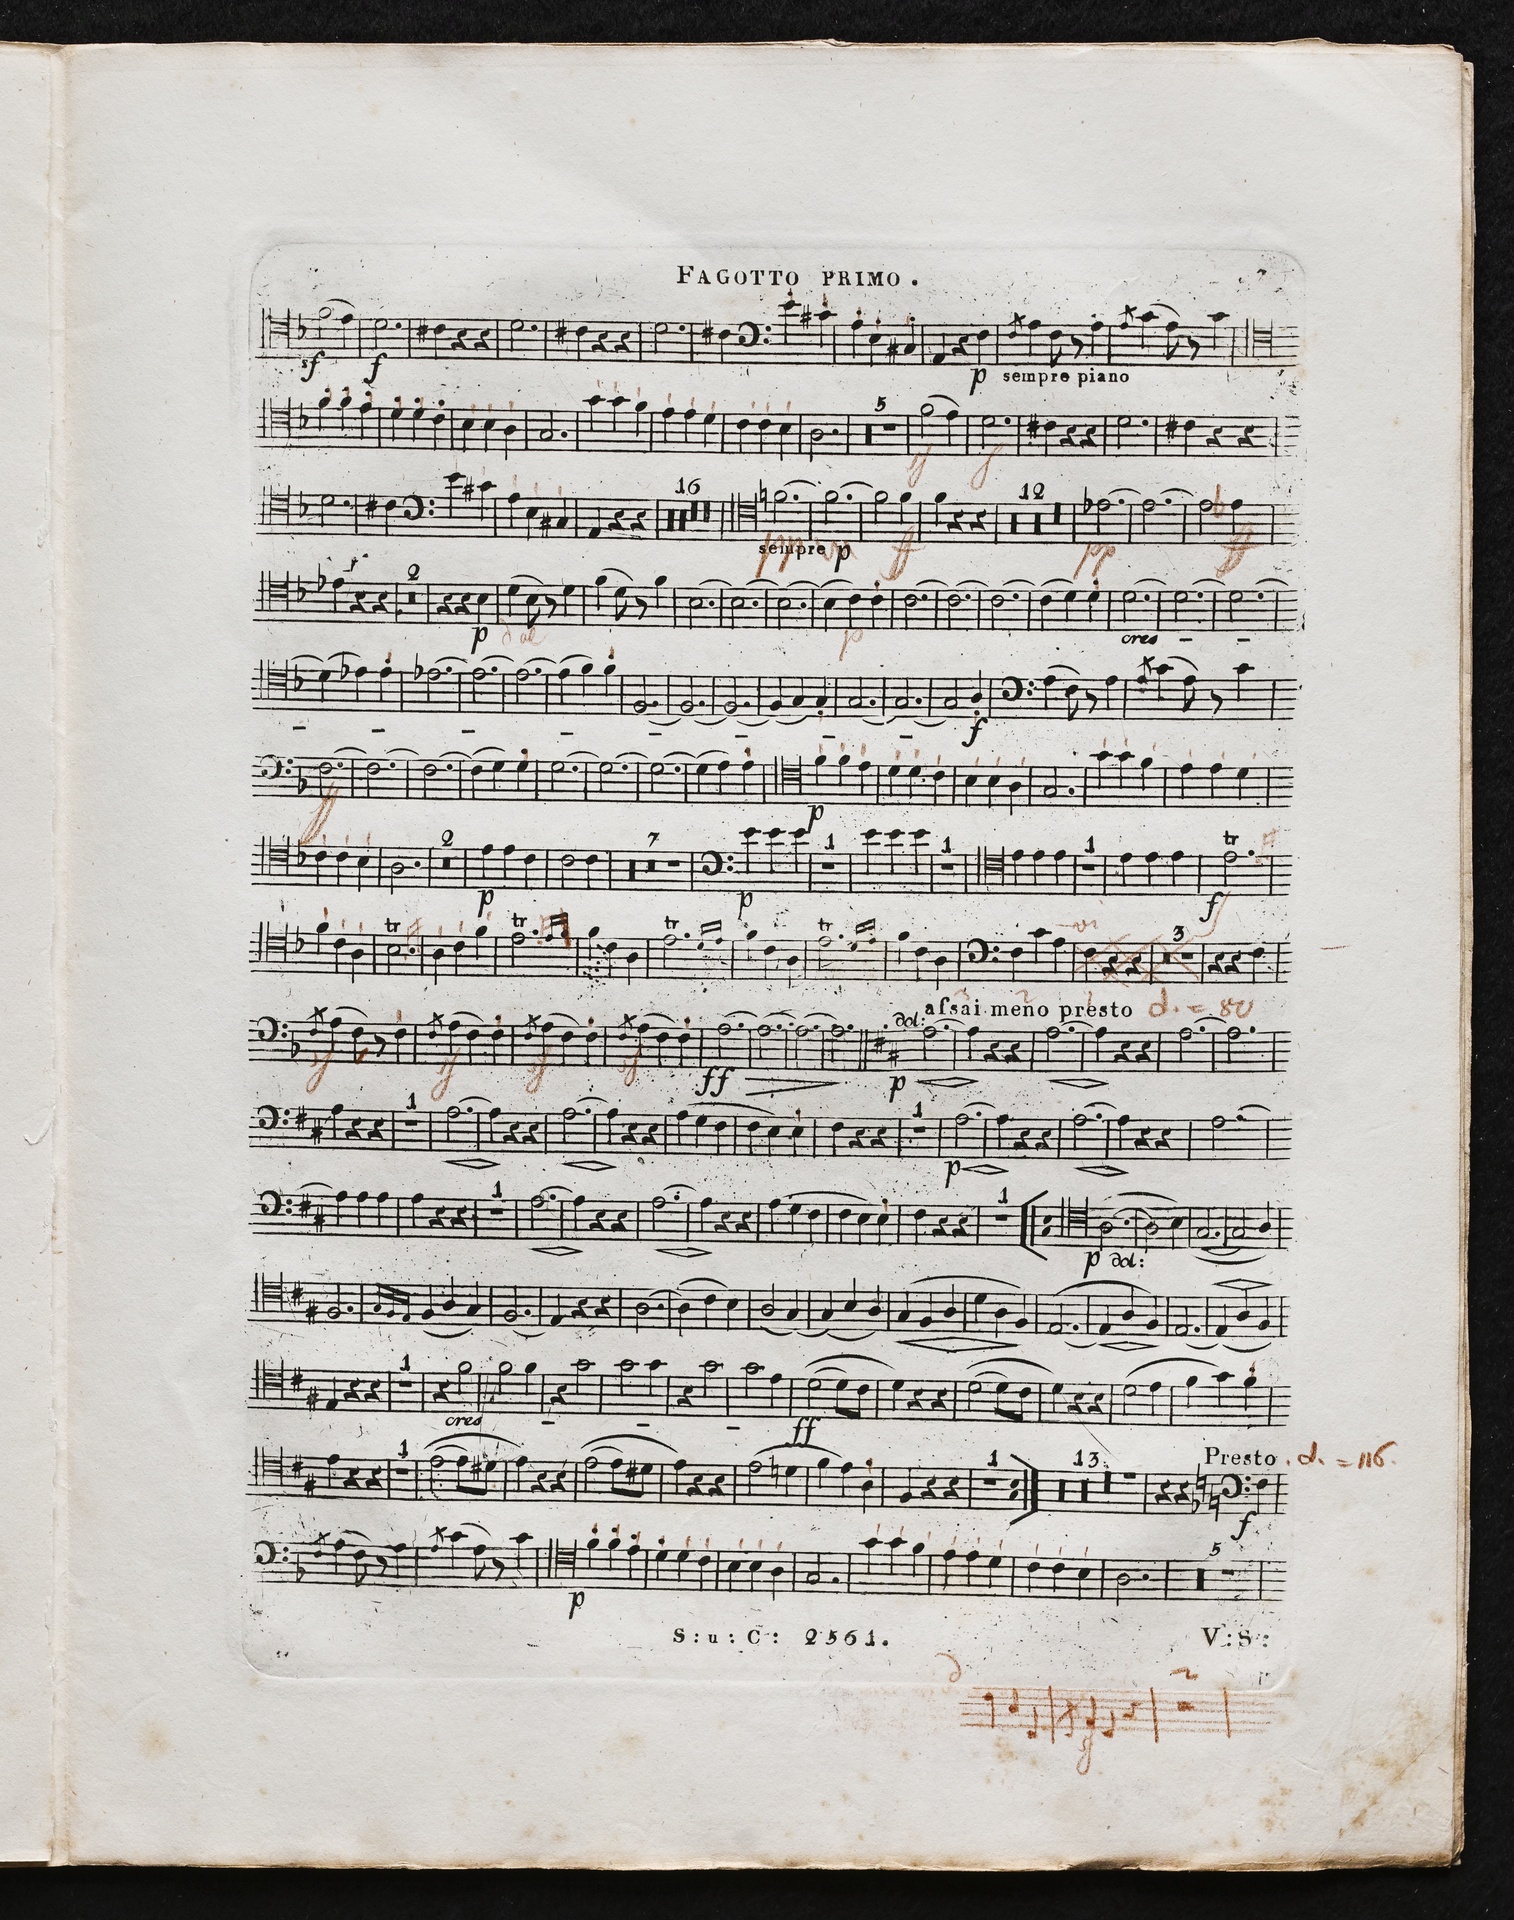 FAGOTTO PRIMO. 7
sf f p sempre piano
5
sf f
16 12
sempre p
pp ff pp ff
2
p dol p cres - -
- - - - - - - f
ff p
2 7 1 1 1 tr
p p f
tr tr tr tr vi 3
dol: afsai meno presto d. = 80
sf sf sf sf ff p
1 1
p
1 1
p dol:
1
cres - - - ff
1 1 13 Presto. d. = 116.
f
5
p
S:u:C: 2561. V:S:
2